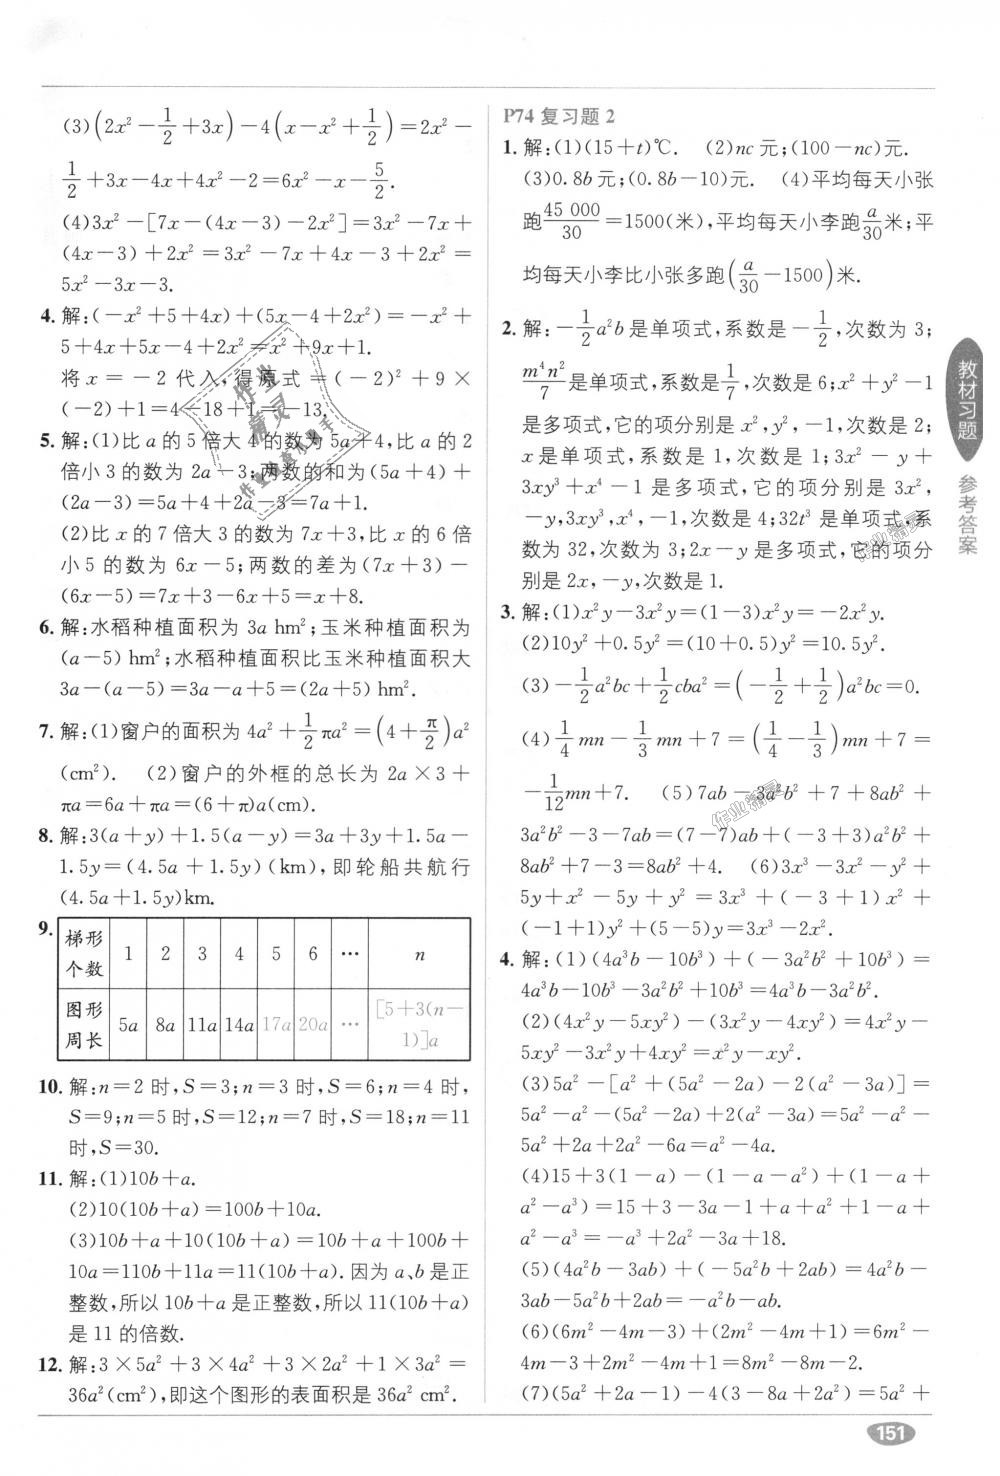 (3)(2x²－1/2＋3x)－4(x－x²＋1/2)＝2x²－
1/2＋3x－4x＋4x²－2＝6x²－x－5/2.
(4)3x²－[7x－(4x－3)－2x²]＝3x²－7x＋
(4x－3)＋2x²＝3x²－7x＋4x－3＋2x²＝
5x²－3x－3.
4. 解:(－x²＋5＋4x)＋(5x－4＋2x²)＝－x²＋
5＋4x＋5x－4＋2x²＝x²＋9x＋1.
将 x＝－2 代入,得原式＝(－2)²＋9×
(－2)＋1＝4－18＋1＝－13.
5. 解:(1)比 a 的 5 倍大 4 的数为 5a＋4,比 a 的 2
倍小 3 的数为 2a－3;两数的和为(5a＋4)＋
(2a－3)＝5a＋4＋2a－3＝7a＋1.
(2)比 x 的 7 倍大 3 的数为 7x＋3,比 x 的 6 倍
小 5 的数为 6x－5;两数的差为(7x＋3)－
(6x－5)＝7x＋3－6x＋5＝x＋8.
6. 解:水稻种植面积为 3a hm²;玉米种植面积为
(a－5) hm²;水稻种植面积比玉米种植面积大
3a－(a－5)＝3a－a＋5＝(2a＋5) hm².
7. 解:(1)窗户的面积为 4a²＋1/2πa²＝(4＋π/2)a²
(cm²). (2)窗户的外框的总长为 2a×3＋
πa＝6a＋πa＝(6＋π)a(cm).
8. 解:3(a＋y)＋1.5(a－y)＝3a＋3y＋1.5a－
1.5y＝(4.5a＋1.5y)(km),即轮船共航行
(4.5a＋1.5y)km.
9. 梯形个数 1 2 3 4 5 6 … n
图形周长 5a 8a 11a 14a 17a 20a … [5＋3(n－1)]a
10. 解:n＝2 时,S＝3;n＝3 时,S＝6;n＝4 时,
S＝9;n＝5 时,S＝12;n＝7 时,S＝18;n＝11
时,S＝30.
11. 解:(1)10b＋a.
(2)10(10b＋a)＝100b＋10a.
(3)10b＋a＋10(10b＋a)＝10b＋a＋100b＋
10a＝110b＋11a＝11(10b＋a). 因为 a、b 是正
整数,所以 10b＋a 是正整数,所以 11(10b＋a)
是 11 的倍数.
12. 解:3×5a²＋3×4a²＋3×2a²＋1×3a²＝
36a²(cm²),即这个图形的表面积是 36a² cm².
P74 复习题 2
1. 解:(1)(15＋t)℃. (2)nc 元;(100－nc)元.
(3)0.8b 元;(0.8b－10)元. (4)平均每天小张
跑45 000/30＝1500(米),平均每天小李跑a/30米;平
均每天小李比小张多跑(a/30－1500)米.
2. 解:－1/2a²b 是单项式,系数是－1/2,次数为 3;
m⁴n²/7是单项式,系数是1/7,次数为 6;x²＋y²－1
是多项式,它的项分别是 x²,y²,－1,次数是 2;
x 是单项式,系数是 1,次数是 1;3x²－y＋
3xy³＋x⁴－1 是多项式,它的项分别是 3x²,
－y,3xy³,x⁴,－1,次数是 4;32t³ 是单项式,系
数为 32,次数为 3;2x－y 是多项式,它的项分
别是 2x,－y,次数是 1.
3. 解:(1)x²y－3x²y＝(1－3)x²y＝－2x²y.
(2)10y²＋0.5y²＝(10＋0.5)y²＝10.5y².
(3)－1/2a²bc＋1/2cba²＝(－1/2＋1/2)a²bc＝0.
(4)1/4mn－1/3mn＋7＝(1/4－1/3)mn＋7＝
－1/12mn＋7. (5)7ab－3a²b²＋7＋8ab²＋
3a²b²－3－7ab＝(7－7)ab＋(－3＋3)a²b²＋
8ab²＋7－3＝8ab²＋4. (6)3x³－3x²－y²＋
5y＋x²－5y＋y²＝3x³＋(－3＋1)x²＋
(－1＋1)y²＋(5－5)y＝3x³－2x².
4. 解:(1)(4a³b－10b³)＋(－3a²b²＋10b³)＝
4a³b－10b³－3a²b²＋10b³＝4a³b－3a²b².
(2)(4x²y－5xy²)－(3x²y－4xy²)＝4x²y－
5xy²－3x²y＋4xy²＝x²y－xy².
(3)5a²－[a²＋(5a²－2a)－2(a²－3a)]＝
5a²－a²－(5a²－2a)＋2(a²－3a)＝5a²－a²－
5a²＋2a＋2a²－6a＝a²－4a.
(4)15＋3(1－a)－(1－a－a²)＋(1－a＋
a²－a³)＝15＋3－3a－1＋a＋a²＋1－a＋
a²－a³＝－a³＋2a²－3a＋18.
(5)(4a²b－3ab)＋(－5a²b＋2ab)＝4a²b－
3ab－5a²b＋2ab＝－a²b－ab.
(6)(6m²－4m－3)＋(2m²－4m＋1)＝6m²－
4m－3＋2m²－4m＋1＝8m²－8m－2.
(7)(5a²＋2a－1)－4(3－8a＋2a²)＝5a²＋
教材习题
参考答案
作业精灵
作业精灵
151